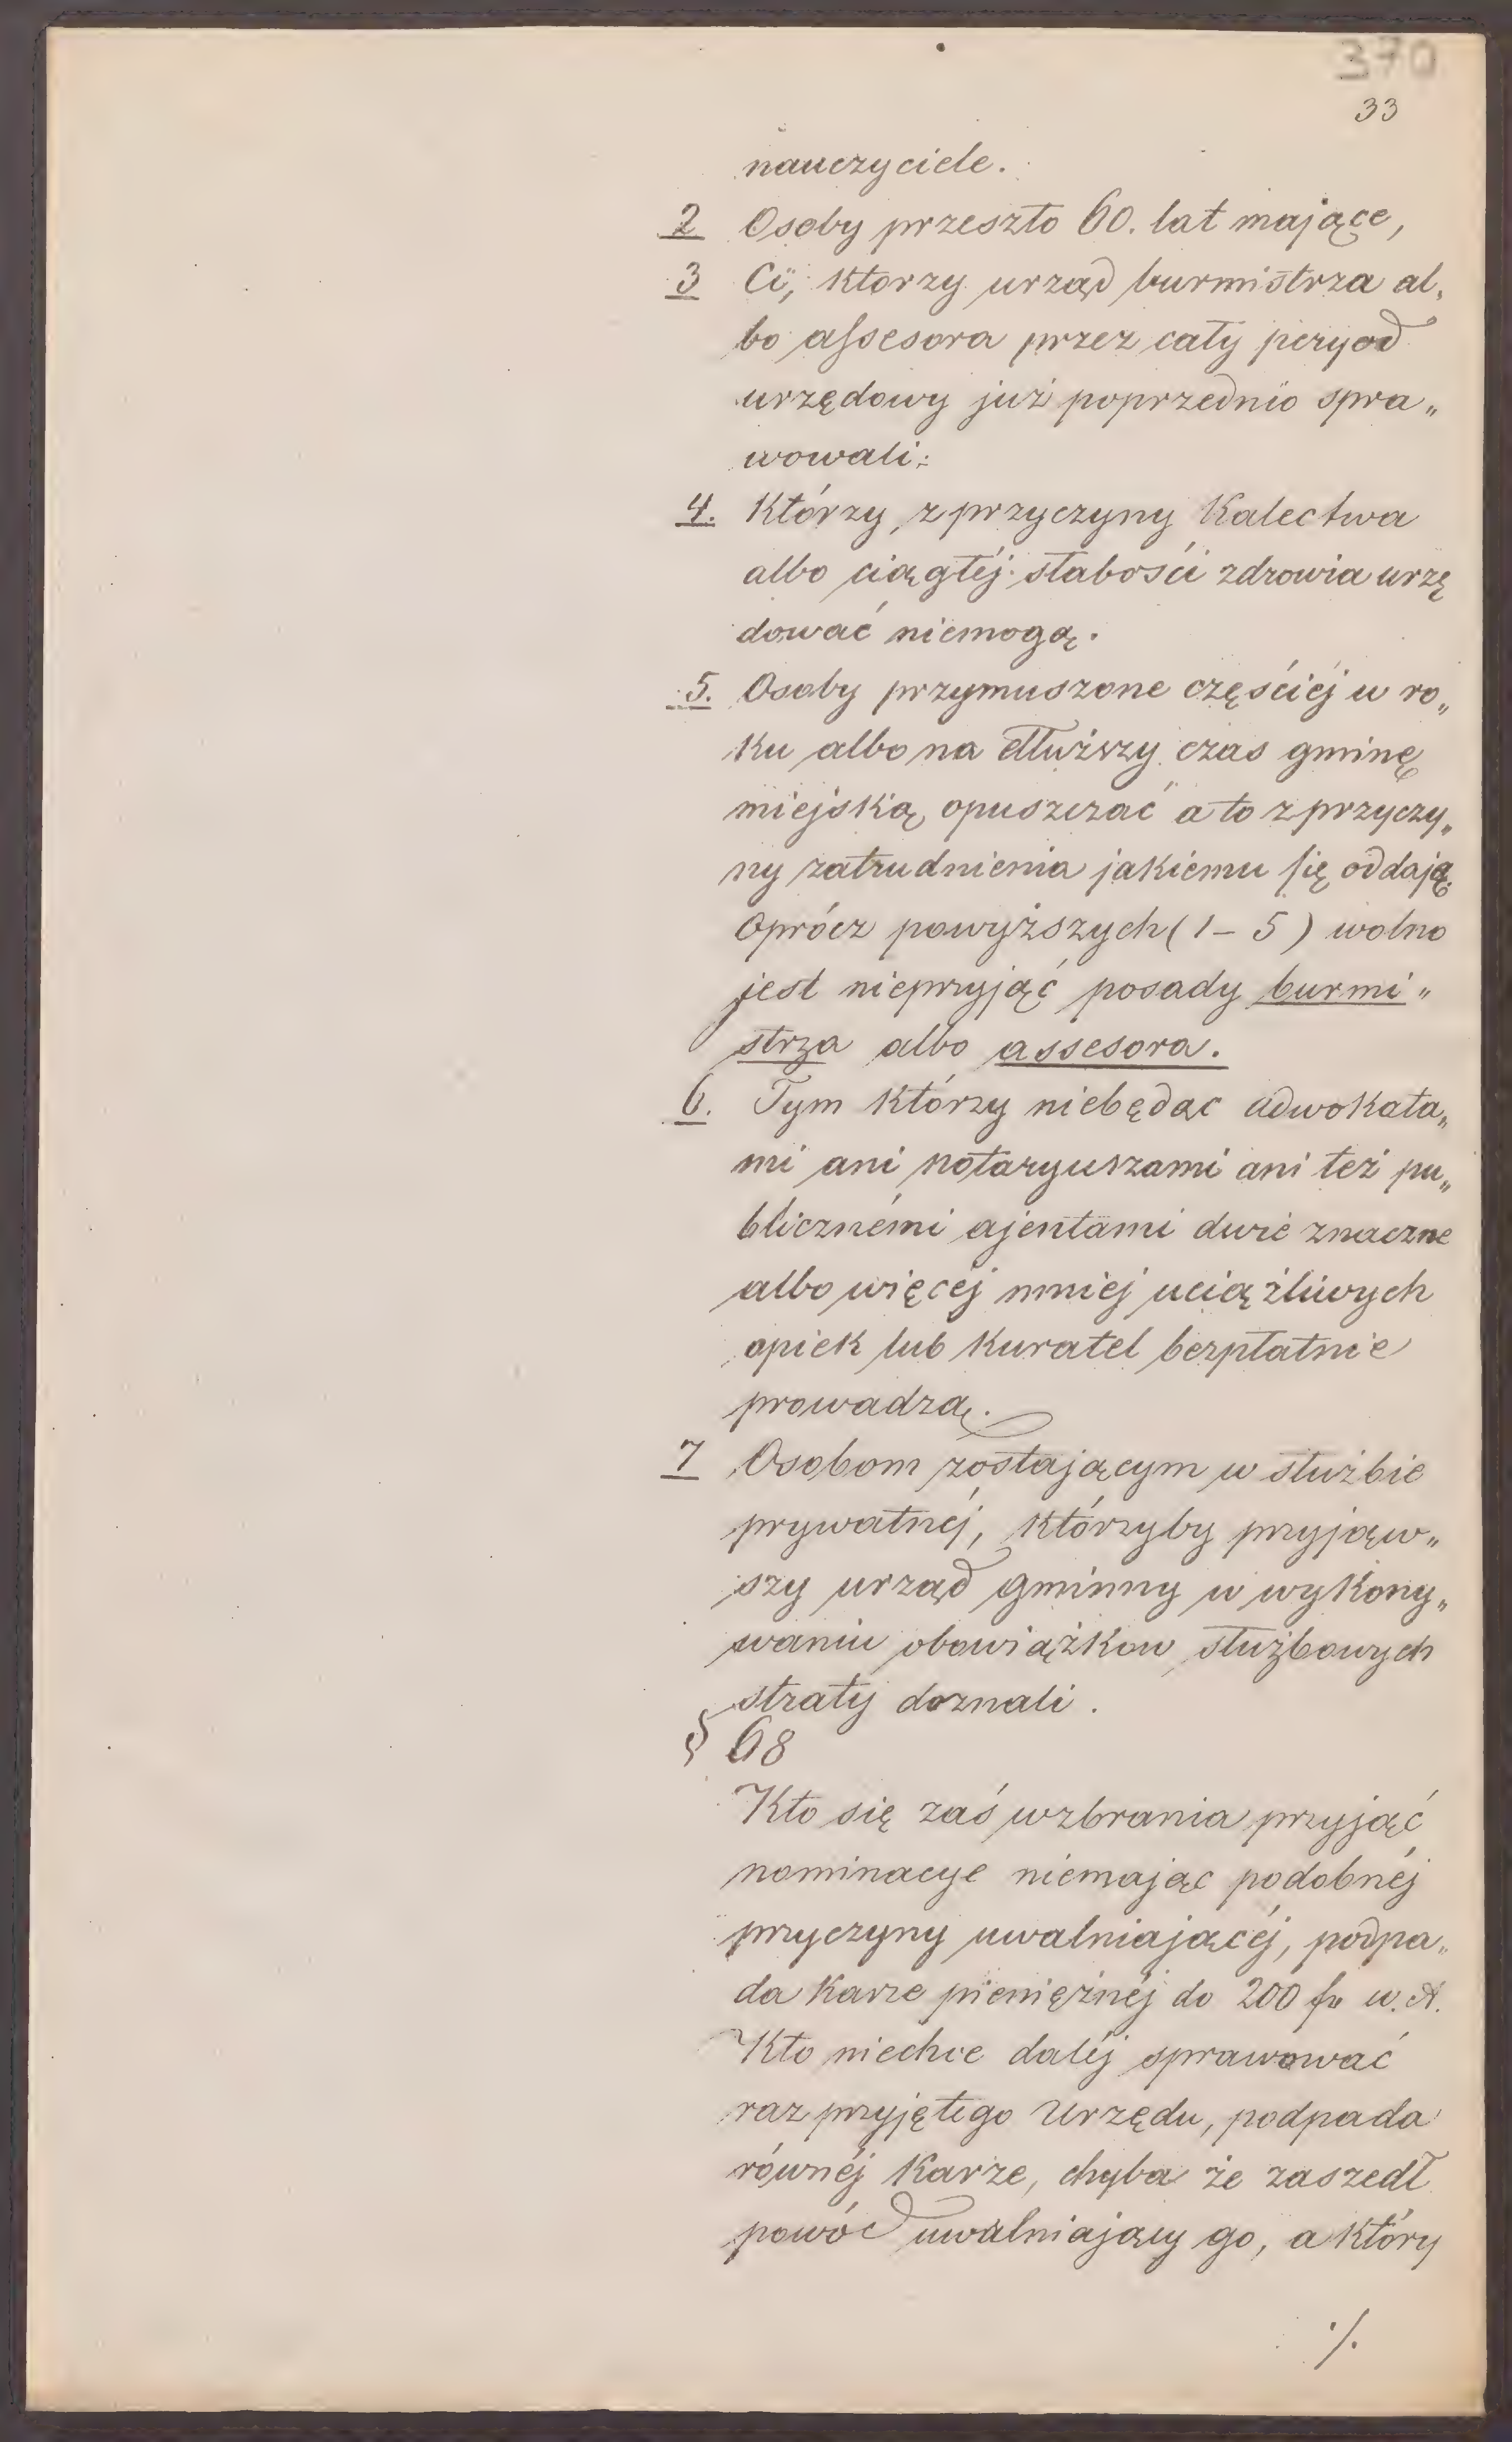 370
33
nauczyciele.
2 Osoby przeszło 60. lat mające,
3 Ci, ktorzy urząd burmistrza al„
bo assesora przez cały peryod
urzędowy już poprzednio spra„
wowali:
4. Którzy z przyczyny Kalectwa
albo ciągłéj słabości zdrowia urzę
dować niemogą.
5. Osoby przymuszone częściéj w ro„
ku albo na dłuższy czas gminę
miejską opuszczać a to z przyczy„
ny zatrudnienia jakiemu się oddają.
Oprócz powyższych (1 – 5) wolno
jest nieprzyjąć posady burmi„
strza albo assesora.
6. Tym którzy niebędąc adwokata„
mi ani notaryuszami ani też pu„
blicznémi ajentami dwie znaczne
albo więcéj mniej uciążliwych
opiek lub kuratel bezpłatnie
prowadzą.
7 Osobom zostającym w służbie
prywatnéj, którzyby przyjąw„
szy urząd gminny w wykony„
waniu obowiążkow służbowych
straty doznali.
§ 68
Kto się zaś wzbrania przyjąć
nominacye niemając podobnéj
przyczyny uwalniającéj, podpa„
da karze pieniężnéj do 200 fr w. A.
Kto niechce daléj sprawować
raz przyjętego Urzędu, podpada
równéj Karze, chyba że zaszedł
powód uwalniający go, a który
./.